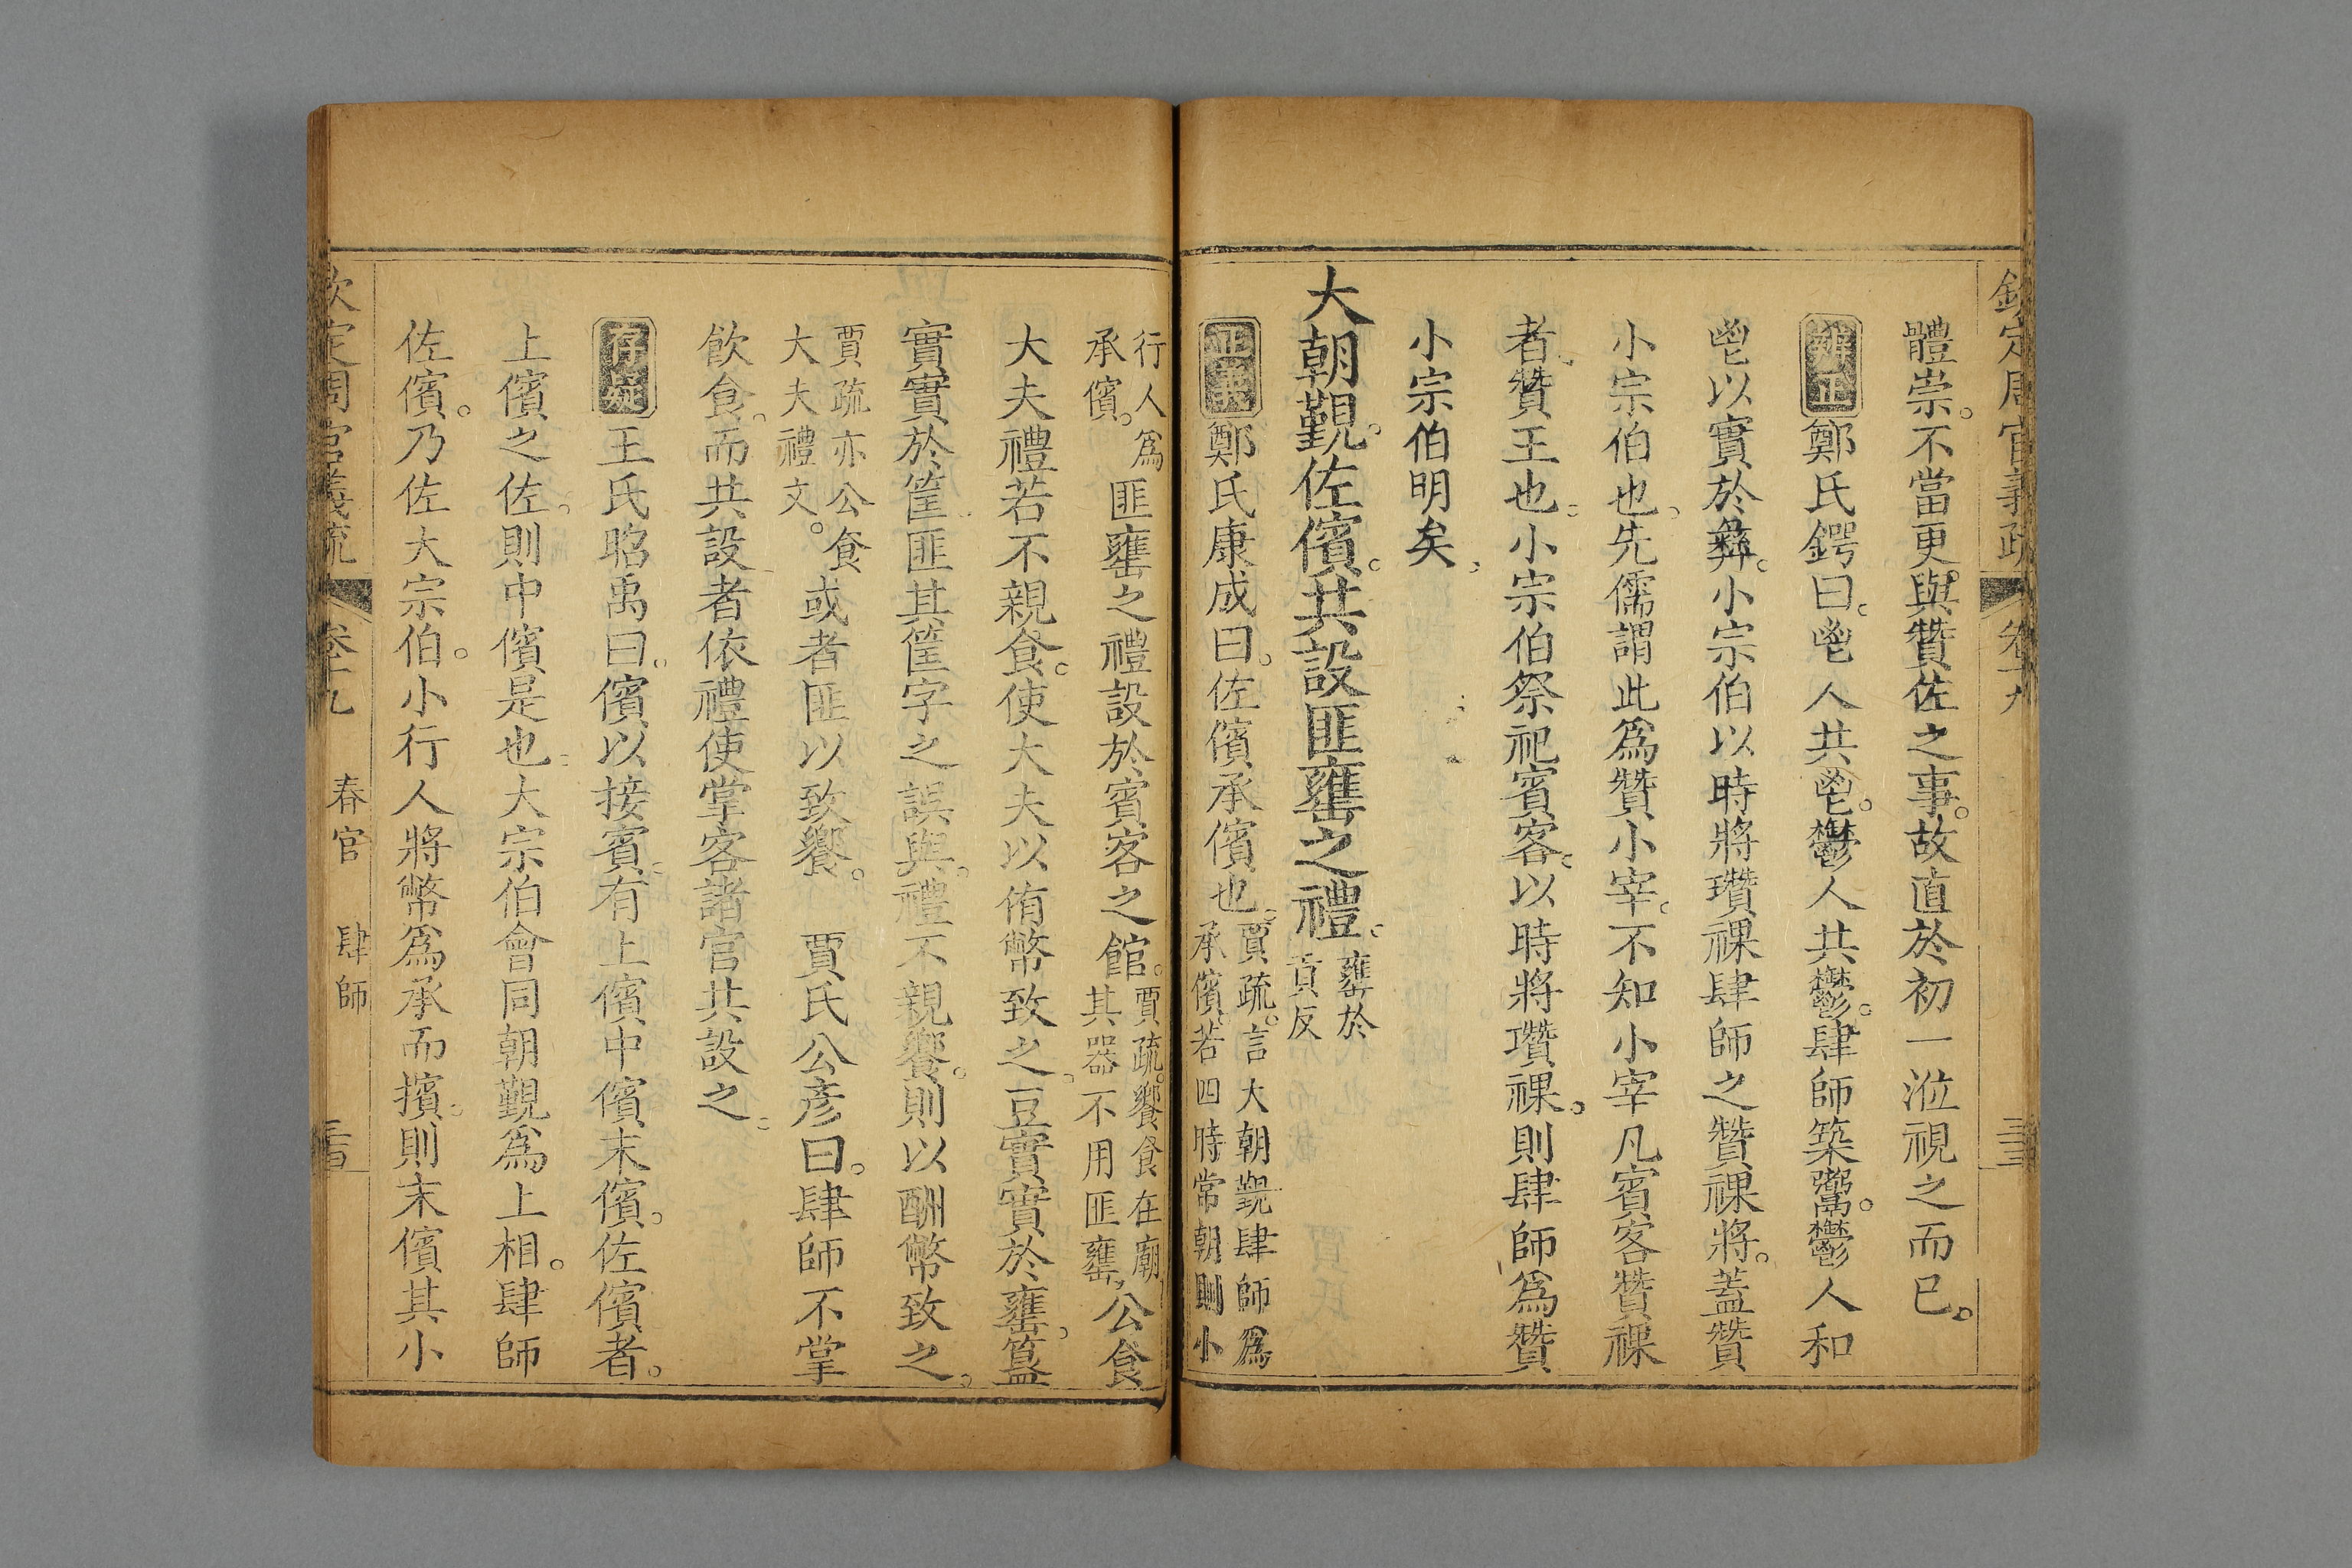 欽定周官義疏 卷十九
體崇。不當更與贊佐之事。故直於初一涖視之而已。
辨正 鄭氏鍔曰。鬯人共鬯。鬱人共鬱。肆師築鬻。鬱人和
鬯以實於彝。小宗伯以時將瓚祼。肆師之贊祼將。蓋贊
小宗伯也。先儒謂此爲贊小宰。不知小宰凡賓客贊祼
者。贊王也。小宗伯祭祀賓客。以時將瓚祼。則肆師爲贊
小宗伯明矣。
大朝覲。佐儐。共設匪罋之禮。罋於貢反
正義 鄭氏康成曰。佐儐承儐也。賈疏。言大朝覲肆師爲承儐。若四時常朝則小
行人爲承儐。匪罋之禮設於賓客之館。賈疏。饗食在廟其器不用匪罋。公食
大夫禮若不親食。使大夫以侑幣致之。豆實實於罋。簋
實實於篚。匪其篚字之誤與。禮不親饗。則以酬幣致之。
賈疏亦公食大夫禮文。或者匪以致饗。 賈氏公彥曰。肆師不掌
飲食。而共設者依禮使掌客諸官共設之。
存疑 王氏昭禹曰。儐以接賓。有上儐中儐末儐。佐儐者。
上儐之佐。則中儐是也。大宗伯會同朝覲爲上相。肆師
佐儐。乃佐大宗伯。小行人將幣爲承而擯。則末儐其小
欽定周官義疏 卷十九 春官 肆師